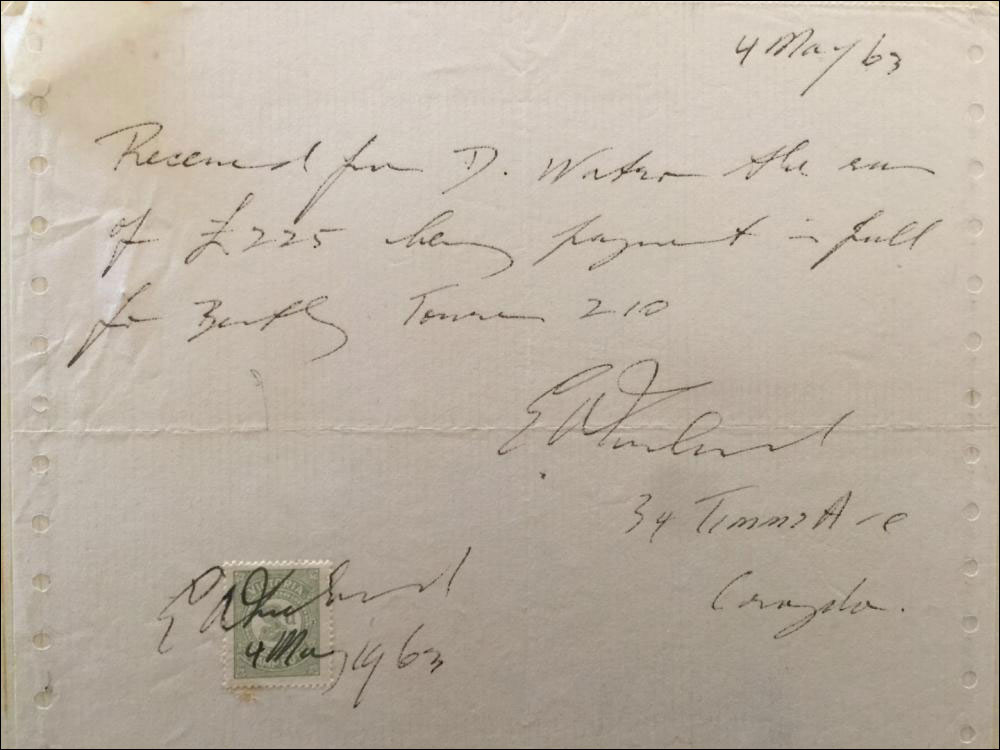 4 May 63
Received from D. Watson the sum
of £225 being payment in full
for Bentley Tourer 210
E A
34 Timms Ave
Croydon.
VICTORIA
E A
4 May 1963